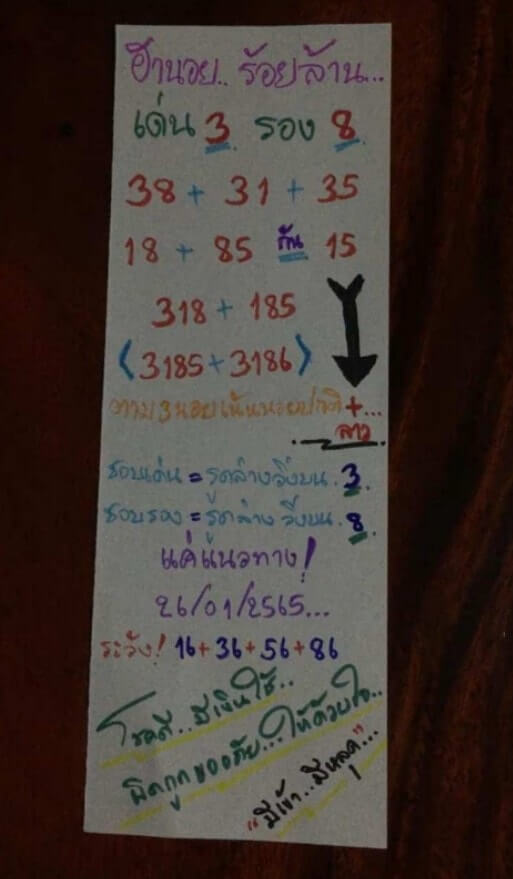 ฮานอย.. ร้อยล้าน...
เด่น 3 รอง 8
38 + 31 + 35
18 + 85 กัน 15
318 + 185
(3185 + 3186)
ตาม 3 นอยเน้นนอยปกติ +...
ลาว
ชอบเด่น = รูดล่างวิ่งบน . 3 .
ชอบรอง = รูดล่างวิ่งบน . 8 .
แค่แนวทาง!
26/01/2565...
ระวัง! 16 + 36 + 56 + 86
โชคดี.. มีเงินใช้..
ผิดถูกขออภัย... ให้ด้วยใจ..
"มีเข้า.. มีหลุด"...